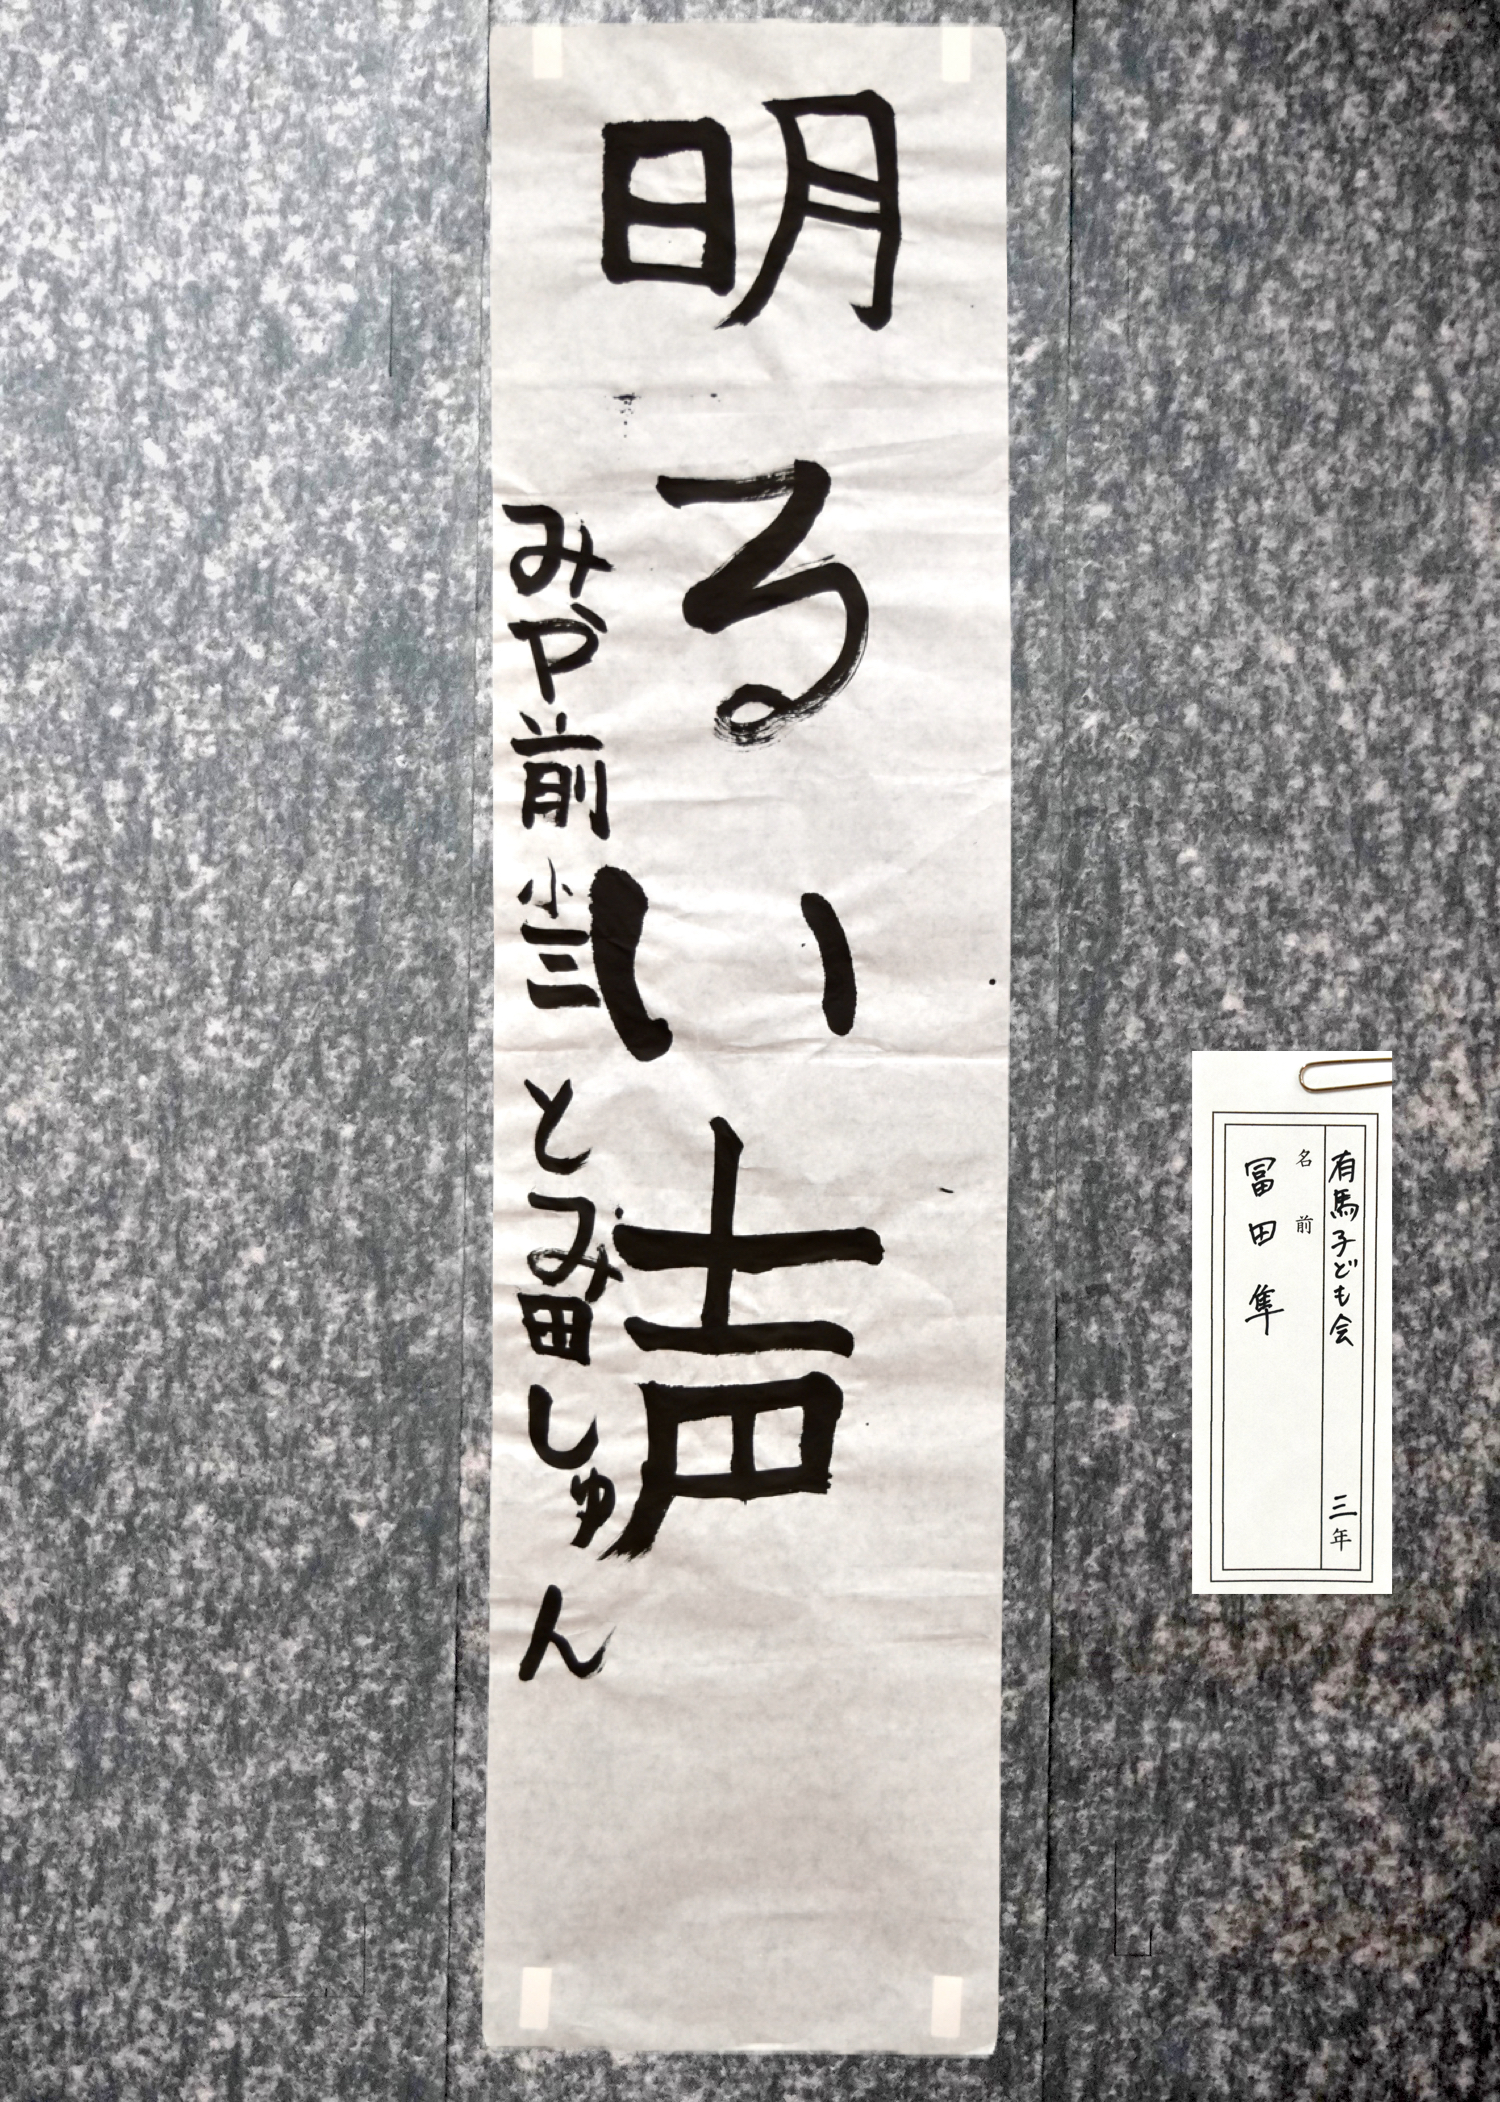 明るい声
みや前小三 とみ田しゅん
有馬子ども会 三年
名前
冨田隼